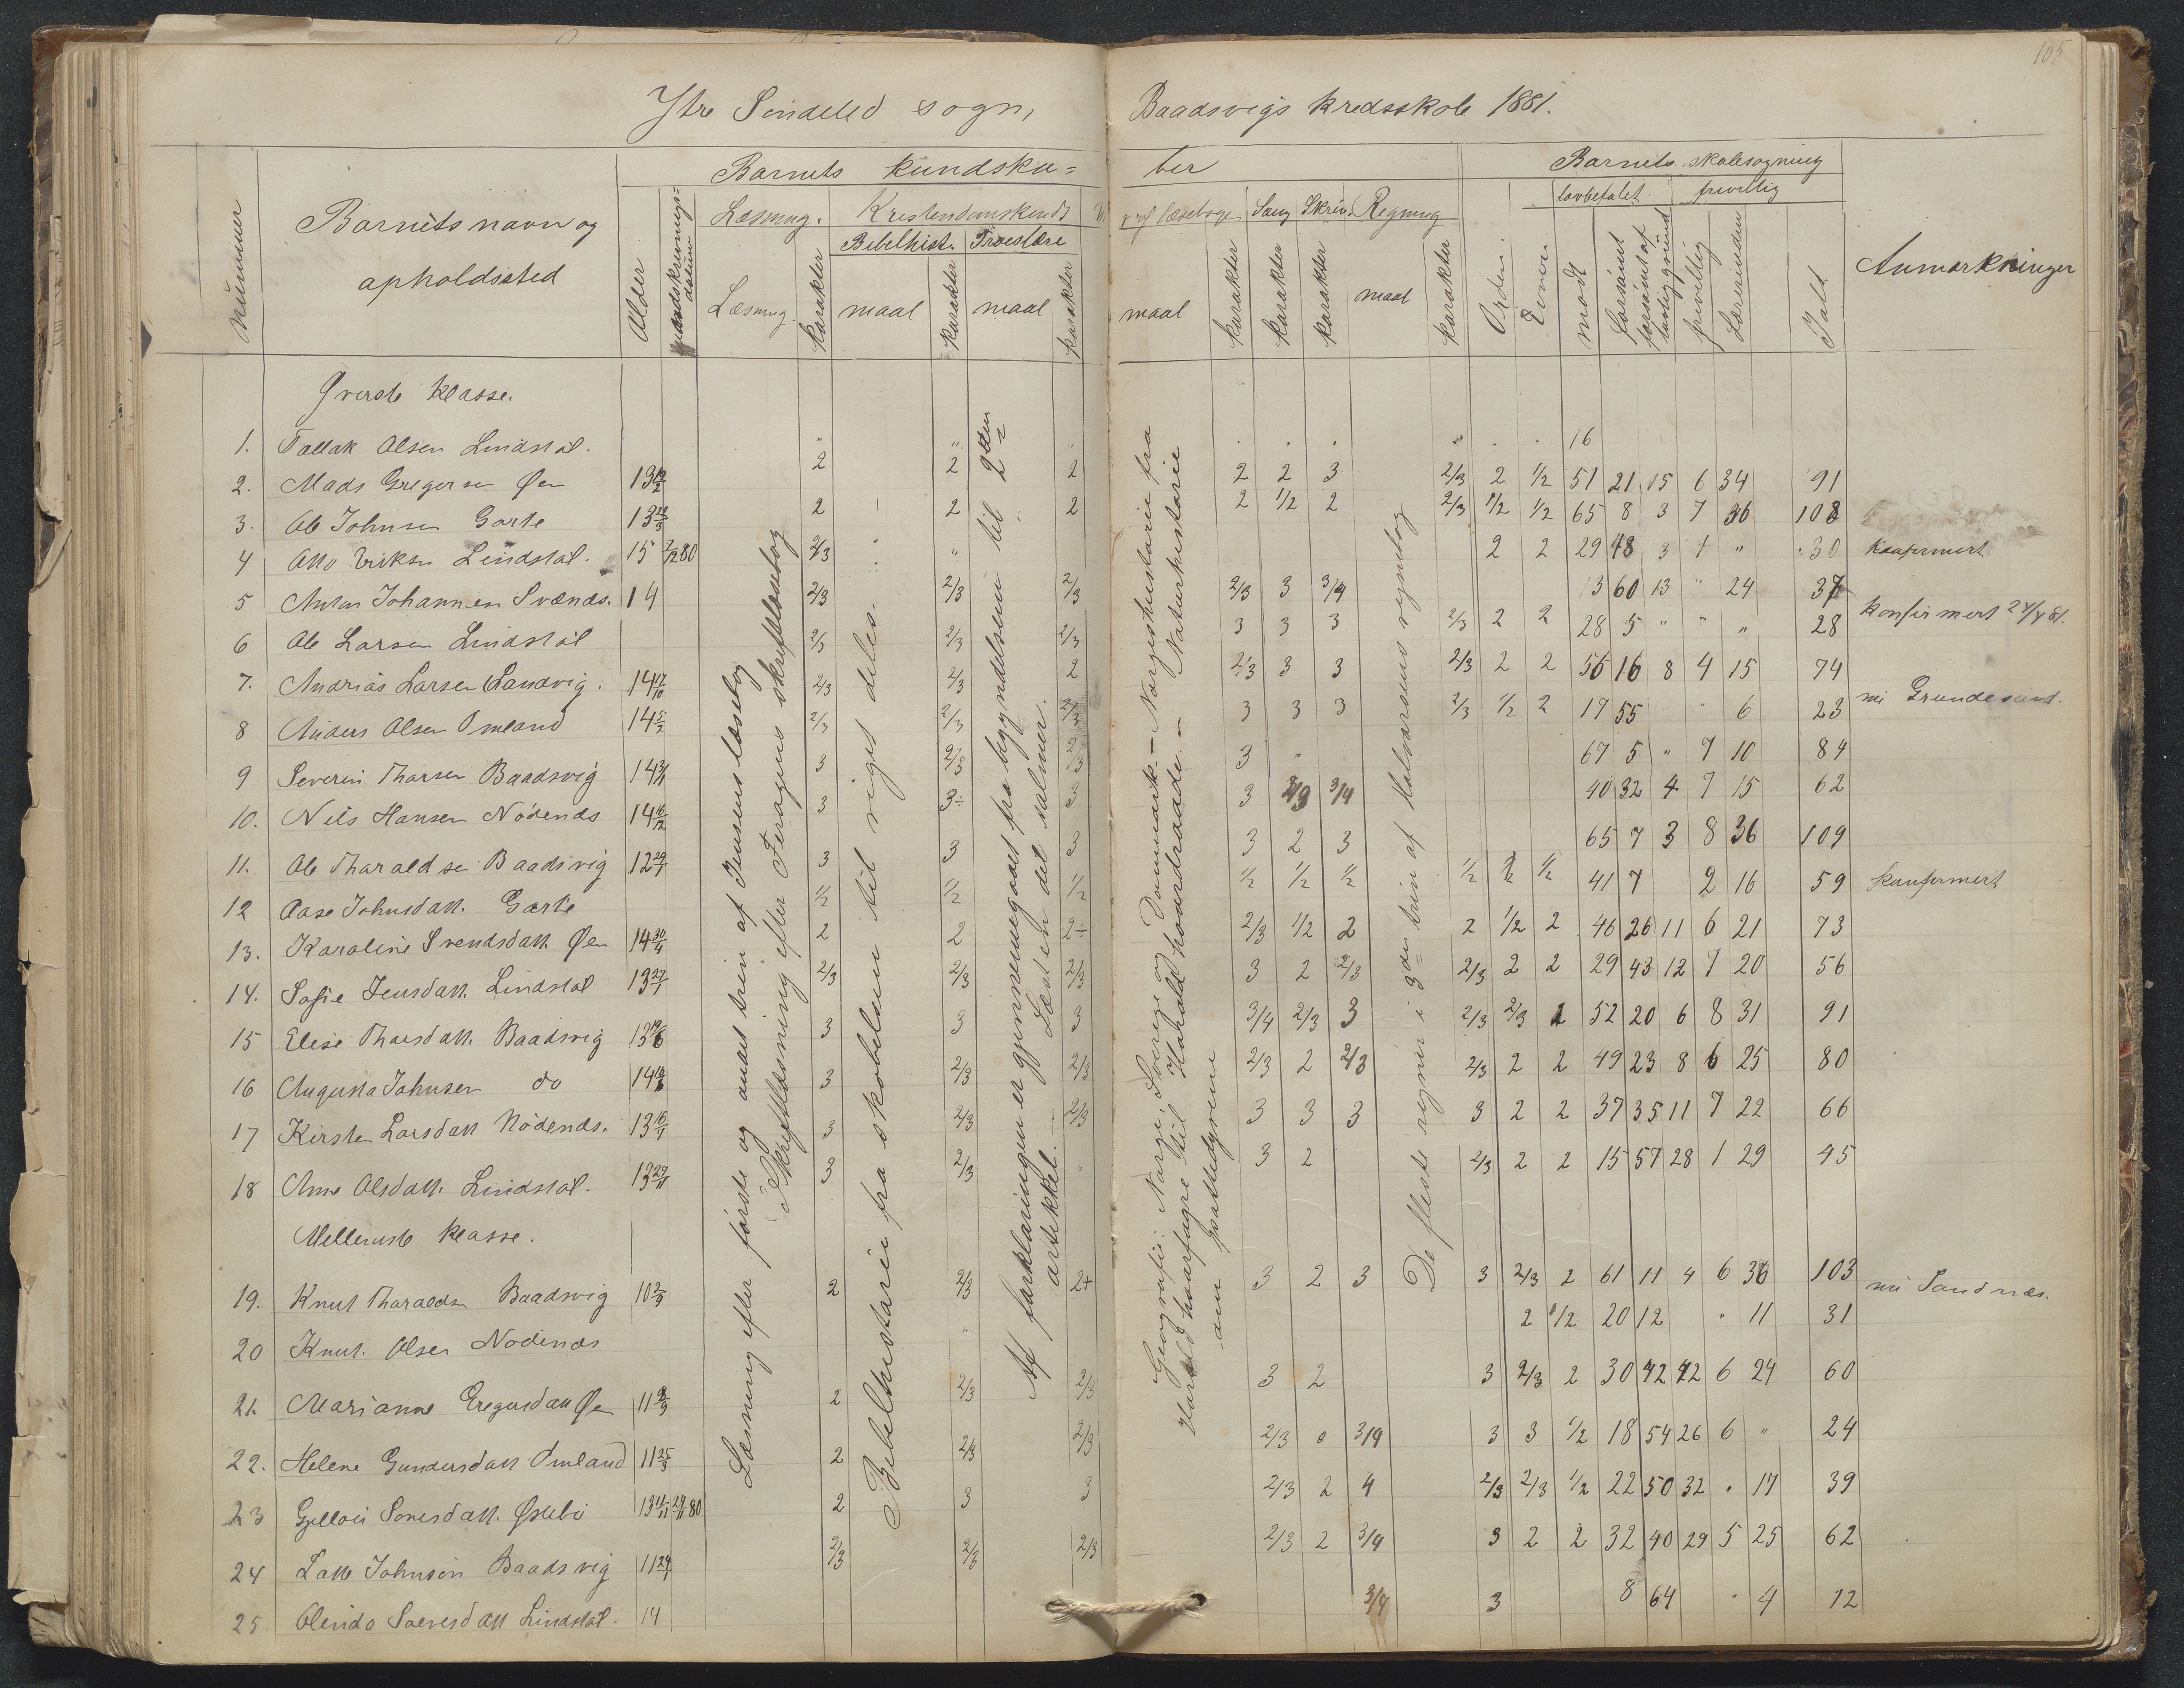 105
Ytre Søndeled sogn,
Baadsvigs kredsskole 1881.
Barnets kundska=
ber
Barnets skolesøgning
nummer
Barnets navn og
opholdssted
Alder
Læsning.
Kristendomskunds
af læsebogen
Sang
Skriv.
Regning
lovbefalet
frivillig
Bibelhist.
Troeslære
Læsning.
karakter
maal
karakter
maal
karakter
maal
karakter
karakter
karakter
maal
karakter
Orden
Evner
mødt
forsømt
forsømt af
lovlig grund
frivillig
Lærerinden
Ialt
Anmærkninger
Øverste klasse.
1. Tallak Olsen Lindstøl. " " " . . . " . . 16
2. Mads Gregersen Øen 13 2 2 2 2 2 3 2/3 2 1/2 51 21 15 6 34 91
3. Ole Johnsen Garte 13 2 2 2 2 1/2 2 2/3 1/2 1/2 65 8 3 7 36 108
4 Otto Eriksen Lindstøl. 15 80 2/3 " 2 2 29 48 3 1 " 30 konfirmert
5 Anton Johannesen Svænds. 14 2/3 2/3 2/3 2/3 3 3/4 13 60 13 " 24 37
6 Ole Larsen Lindstøl 2/3 2/3 2/3 3 3 3 2/3 2 2 28 5 " " " 28 konfirmert 24/4 81.
7. Andrias Larsen Sandvig. 14 17/10 2/3 2/3 2 2/3 3 3 2/3 2 2 56 16 8 4 15 74
8 Anders Olsen Omland 14 5/2 2/3 2/3 2/3 3 3 3 2/3 1/2 2 17 55 " 6 23 ni Grundesund.
9 Severin Tharsen Baadsvig 14 3 2/3 2/3 3 " 67 5 " 7 10 84
10. Nils Hansen Nødenæs 14 16/12 3 3÷ 3 3 2/3 3/4 40 32 4 7 15 62
11. Ole Tharaldsen Baadsvig 12 3 3 3 3 2 3 65 7 3 8 36 109
12 Aase Johnsdatt. Garte 1/2 1/2 1/2 1/2 1/2 1/2 1/2 1/2 1/2 41 7 2 16 59 konfirmert
13. Karoline Svendsdatt. Øen 14 30/4 2 2 2÷ 2/3 1/2 2 2 1/2 2 46 26 11 6 21 73
14. Sofie Jensdatt. Lindstøl 13 27/1 2/3 2/3 2/3 3 2 2/3 2/3 2 2 29 43 12 7 20 56
15 Elise Tharsdatt. Baadsvig 13 3 3 3 3/4 2/3 3 2/3 2/3 2 52 20 6 8 31 91
16 Augusta Johnsen do 14 3 2/3 2/3 2/3 2 2/3 2/3 2 2 49 23 8 6 25 80
17 Kirsten Larsdatt Nødenæs. 13 3 2/3 2/3 3 3 3 3 2 2 37 35 11 7 22 66
18 Anne Olsdatt. Lindstøl. 13 3 2/3 " 3 2 2/3 2 2 15 57 28 1 29 45
Mellemste klasse.
19. Knut Tharaldsen Baadsvig 10 2 2/3 2+ 3 2 3 3 2/3 2 61 11 4 6 36 103 ni Sandnæs.
20 Knut. Olsen Nødenæs " 2 1/2 20 12 " 11 31
21. Marianne Gregersdatt Øen 11 2 2/3 2/3 3 2 3 2/3 2 30 42 12 6 24 60
22. Helene Gundersdatt Omland 11 25/3 2 2/3 2/3 2/3 0 3/4 3 3 1/2 18 54 26 6 " 24
23 Sonesdatt. Østebø 13 11/11 80 2 3 3 2/3 2 4 2/3 2/3 1/2 22 50 32 . 17 39
24 Johnsen Baadsvig 11 2/3 2/3 2/3 2/3 2 3/4 3 2 2 32 40 29 5 25 62
25 Olinda Lindstøl. 14 3/4 3 8 64 . 4 12
Læsning efter første og andet trin af Jensens læsebog
Skriftlæsning efter Feragens skriftlæsebog
Bibelhistorie fra skabelsen til riget deles.
Af forklaringen er gjennemgaaet fra begyndelsen til 2den
artikkel. Læst en del salmer.
Geografie: Norge, Sverige og Danmark. – Norgeshistorie fra
Harald haarfagre til Harald haardraade. – Naturhistorie
om pattedyrene
De fleste regner i 3die trin af Halvorsens regnebog